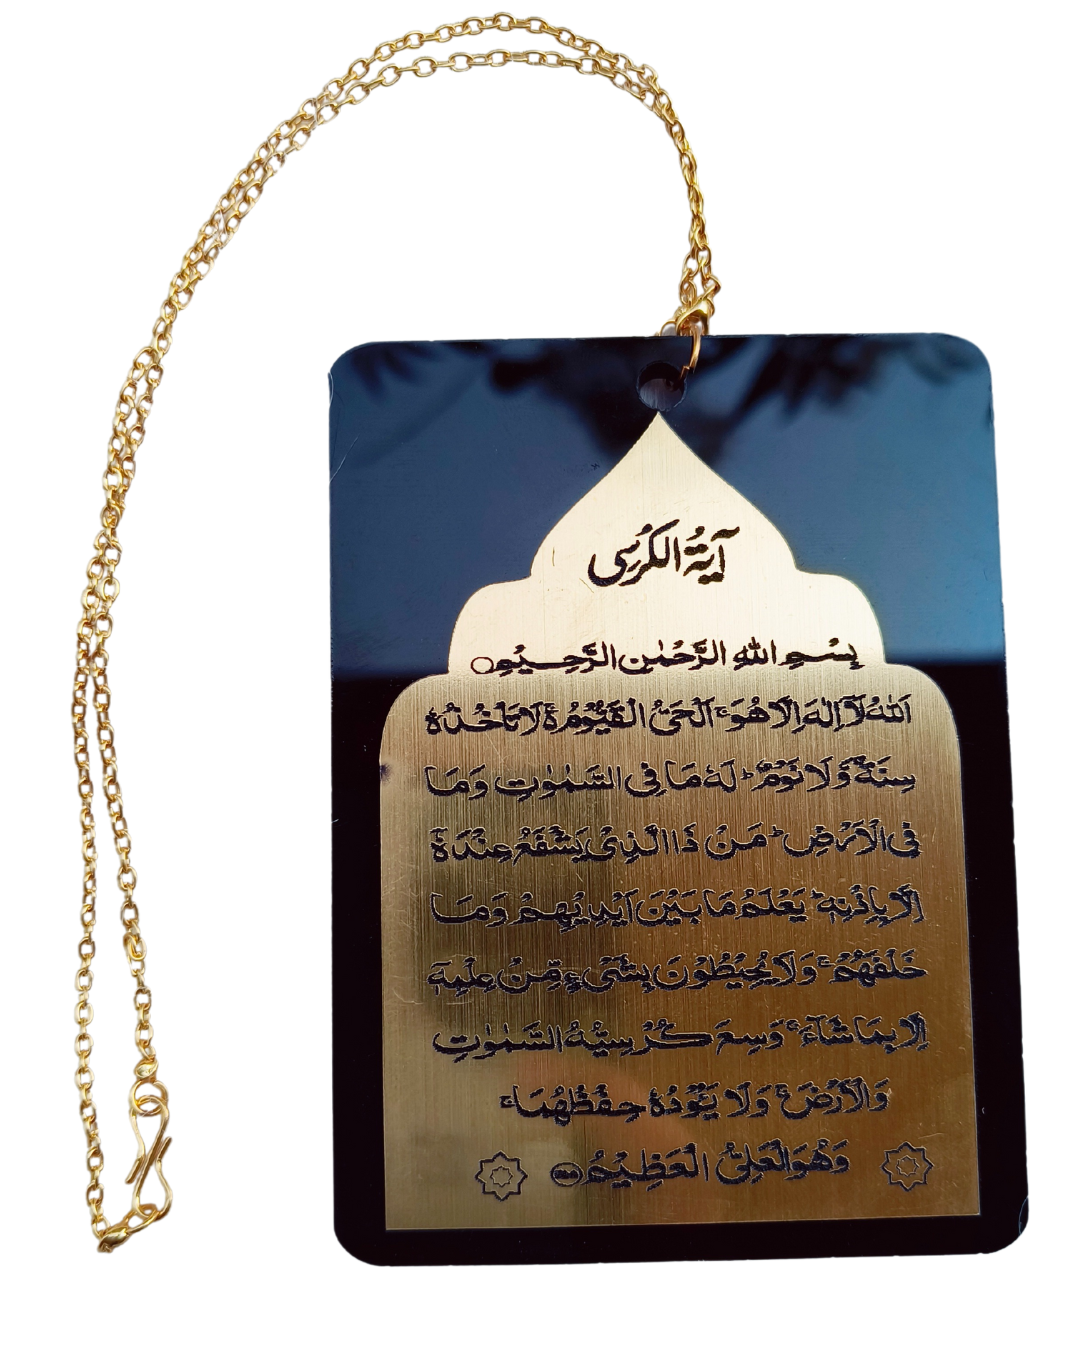 آيَةُ الكُرْسِى
بِسْمِ اللهِ الرَّحْمٰنِ الرَّحِيْمِ
اَللهُ لَآ اِلٰهَ اِلَّا هُوَ ۚ اَلْحَيُّ الْقَيُّوْمُ ەۚ لَا تَاْخُذُهٗ
سِنَةٌ وَّلَا نَوْمٌ ؕ لَهٗ مَا فِى السَّمٰوٰتِ وَمَا
فِى الْاَرْضِ ؕ مَنْ ذَا الَّذِىْ يَشْفَعُ عِنْدَهٗۤ
اِلَّا بِاِذْنِهٖ ؕ يَعْلَمُ مَا بَيْنَ اَيْدِيْهِمْ وَمَا
خَلْفَهُمْ ۚ وَلَا يُحِيْطُوْنَ بِشَىْءٍ مِّنْ عِلْمِهٖۤ
اِلَّا بِمَا شَآءَ ۚ وَسِعَ كُرْسِيُّهُ السَّمٰوٰتِ
وَالْاَرْضَ ۚ وَلَا يَئُوْدُهٗ حِفْظُهُمَا ۚ
وَهُوَ الْعَلِىُّ الْعَظِيْمُ